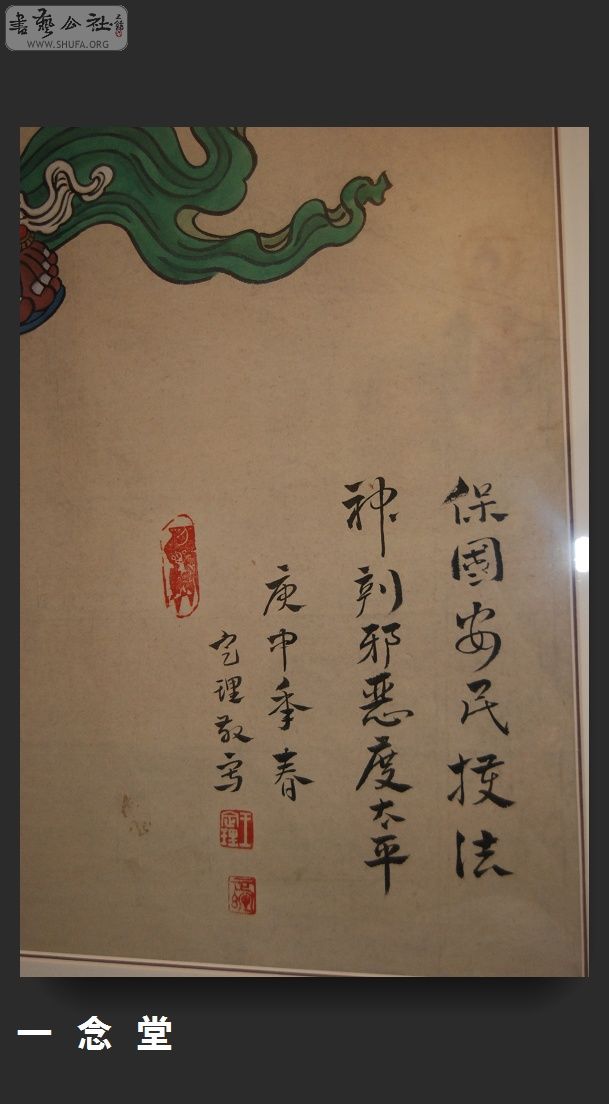 書藝公社
WWW.SHUFA.ORG
保國安民護法
神到邪惡度太平
庚申季春
定理敬寫
王定理
一念堂